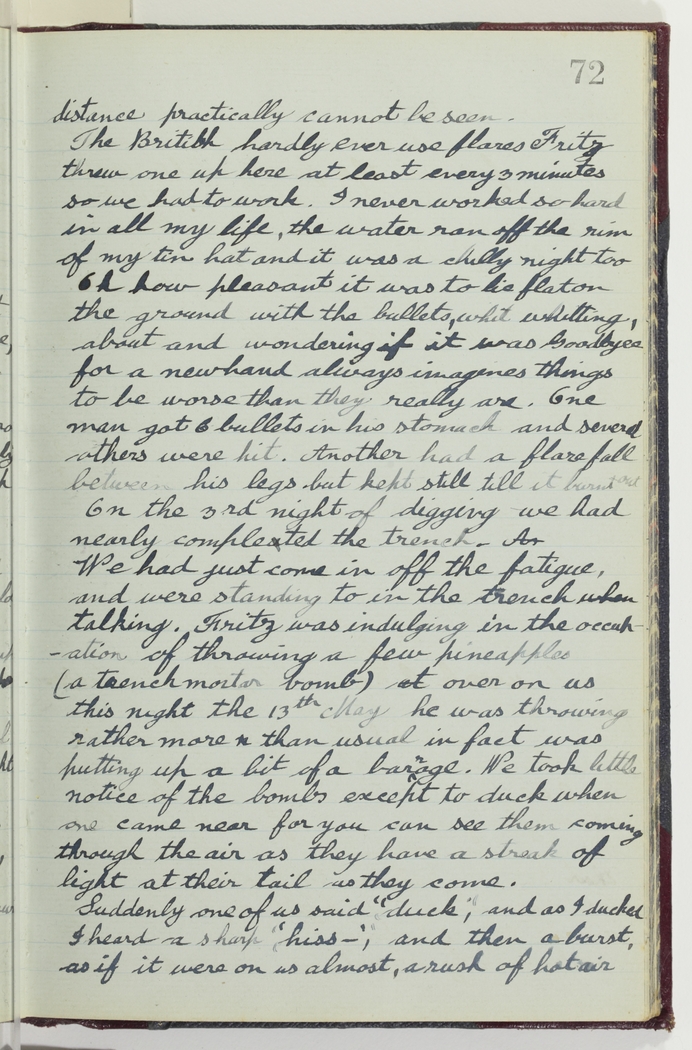 72
distance practically cannot be seen.
The British hardly ever use flares Fritz
threw one up here at least every 3 minutes
so we had to work. I never worked so hard
in all my life, the water ran off the rim
of my tin hat and it was a chilly night too
Oh how pleasant it was to lie flat on
the ground with the bullets, whit whitting,
about and wondering if it was Goodbyee
for a newhand always imagines things
to be worse than they really are. One
man got 6 bullets in his stomach and several
others were hit. Another had a flare fall
between his legs but kept still till it burnt out
On the 3rd night of digging we had
nearly compleated the trench. An
We had just come in off the fatigue,
and were standing to in the trench when
talking. Fritz was indulging in the occup-
-ation of throwing a few pineapples
(a trench mortar bomb) at over on us
this night the 13th May he was throwing
rather more n than usual in fact was
putting up a bit of a barrage. We took little
notice of the bombs except to duck when
one came near for you can see them coming
through the air as they have a streak of
light at their tail as they come.
Suddenly one of us said "duck", and as I ducked
I heard a sharp "hiss-", and then a burst,
as if it were on us almost, a rush of hot air